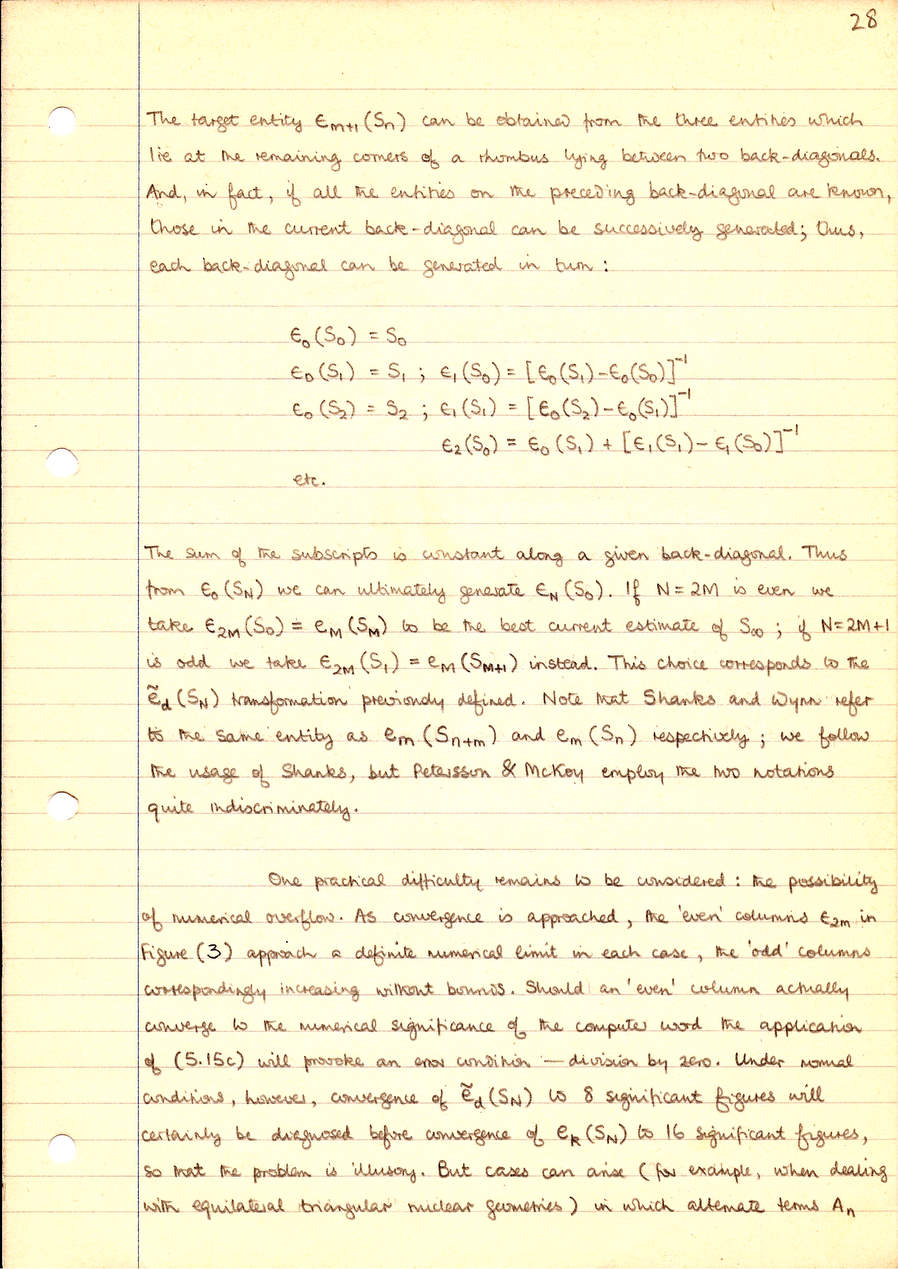 28
The target entity ϵₘ₊₁(Sₙ) can be obtained from the three entities which
lie at the remaining corners of a rhombus lying between two back-diagonals.
And, in fact, if all the entities on the preceding back-diagonal are known,
those in the current back-diagonal can be successively generated; thus,
each back-diagonal can be generated in turn :
ϵ₀(S₀) = S₀
ϵ₀(S₁) = S₁ ; ϵ₁(S₀) = [ϵ₀(S₁)-ϵ₀(S₀)]⁻¹
ϵ₀(S₂) = S₂ ; ϵ₁(S₁) = [ϵ₀(S₂)-ϵ₀(S₁)]⁻¹
ϵ₂(S₀) = ϵ₀(S₁) + [ϵ₁(S₁)- ϵ₁(S₀)]⁻¹
etc.
The sum of the subscripts is constant along a given back-diagonal. Thus
from ϵ₀(S_N) we can ultimately generate ϵ_N(S₀). If N=2M is even we
take ϵ_2M(S₀) = e_M(S_M) to be the best current estimate of S∞ ; if N=2M+1
is odd we take ϵ_2M(S₁) = e_M(S_M+1) instead. This choice corresponds to the
ẽ_d(S_N) transformation previously defined. Note that Shanks and Wynn refer
to the same entity as eₘ(Sₙ₊ₘ) and eₘ(Sₙ) respectively; we follow
the usage of Shanks, but Petersson & McKoy employ the two notations
quite indiscriminately.
One practical difficulty remains to be considered : the possibility
of numerical overflow. As convergence is approached, the 'even' columns ϵ₂ₘ in
Figure (3) approach a definite numerical limit in each case, the 'odd' columns
correspondingly increasing without bounds. Should an 'even' column actually
converge to the numerical significance of the computer word the application
of (5.15c) will provoke an error condition — division by zero. Under normal
conditions, however, convergence of ẽ_d(S_N) to 8 significant figures will
certainly be diagnosed before convergence of e_k(S_N) to 16 significant figures,
so that the problem is illusory. But cases can arise (for example, when dealing
with equilateral triangular nuclear geometries) in which alternate terms Aₙ